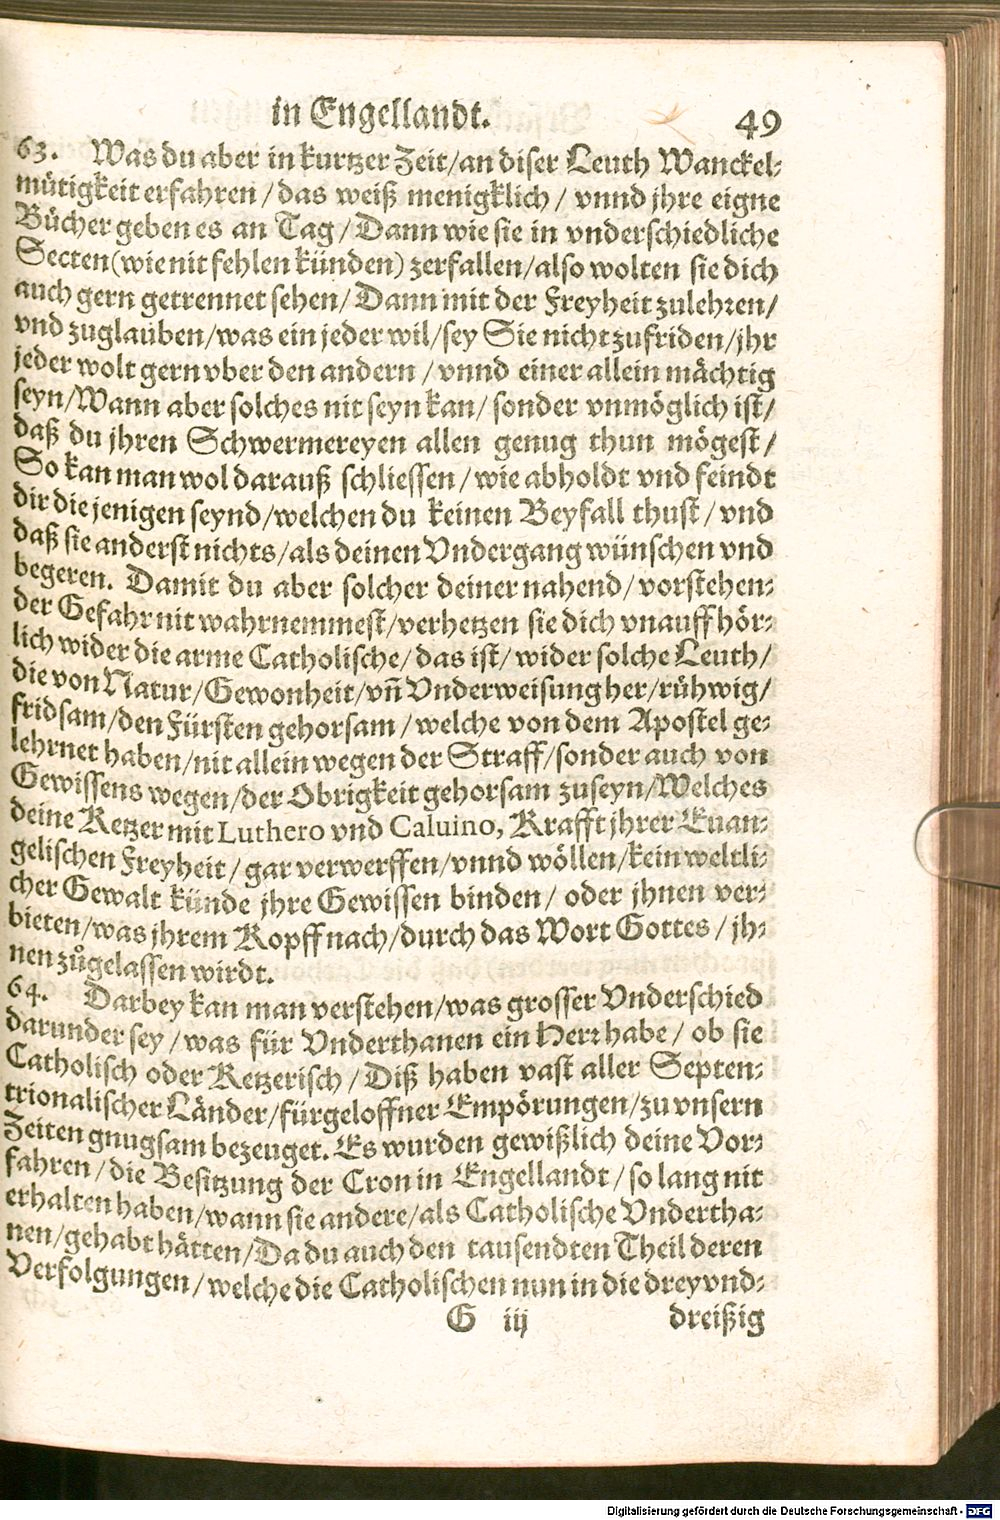 in Engellandt. 49
63. Was du aber in kurtzer Zeit/an diser Leuth Wanckel-
mütigkeit erfahren/das weiß menigklich/ vnnd jhre eigne
Bücher geben es an Tag/Dann wie sie in vnderschiedliche
Secten(wie nit fehlen künden) zerfallen/also wolten sie dich
auch gern getrennet sehen/Dann mit der Freyheit zulehren/
vnd zuglauben/was ein jeder wil/sey Sie nicht zufriden/jhr
jeder wolt gern vber den andern/vnnd einer allein mächtig
seyn/Wann aber solches nit seyn kan/ sonder vnmöglich ist/
daß du jhren Schwermereyen allen genug thun mögest/
So kan man wol darauß schliessen/wie abholdt vnd feindt
dir die jenigen seynd/welchen du keinen Beyfall thust/vnd
daß sie anderst nichts/als deinen Vndergang wünschen vnd
begeren. Damit du aber solcher deiner nahend/vorstehen-
der Gefahr nit wahrnemmest/verhetzen sie dich vnauffhör-
lich wider die arme Catholische/das ist/wider solche Leuth/
die von Natur/Gewonheit/vñ Vnderweisung her/rühwig/
fridsam/den Fürsten gehorsam/welche von dem Apostel ge-
lehrnet haben/nit allein wegen der Straff/sonder auch von
Gewissens wegen/der Obrigkeit gehorsam zuseyn/Welches
deine Ketzer mit Luthero vnd Caluino, Krafft jhrer Euan-
gelischen Freyheit/gar verwerffen/vnnd wöllen/kein weltli-
cher Gewalt künde jhre Gewissen binden/ oder jhnen ver-
bieten/was jhrem Kopff nach/durch das Wort Gottes/jh-
nen zůgelassen wirdt.
64. Darbey kan man verstehen/was grosser Vnderschied
darunder sey/was für Vnderthanen ein Herr habe/ ob sie
Catholisch oder Ketzerisch/Diß haben vast aller Septen-
trionalischer Länder/fürgeloffner Empörungen/zu vnsern
Zeiten gnugsam bezeuget. Es wurden gewißlich deine Vor-
fahren/die Besitzung der Cron in Engellandt/so lang nit
erhalten haben/wann sie andere/als Catholische Vndertha-
nen/gehabt hätten/Da du auch den tausendten Theil deren
Verfolgungen/welche die Catholischen nun in die drey vnd-
G iij dreißig
Digitalisierung gefördert durch die Deutsche Forschungsgemeinschaft - DFG